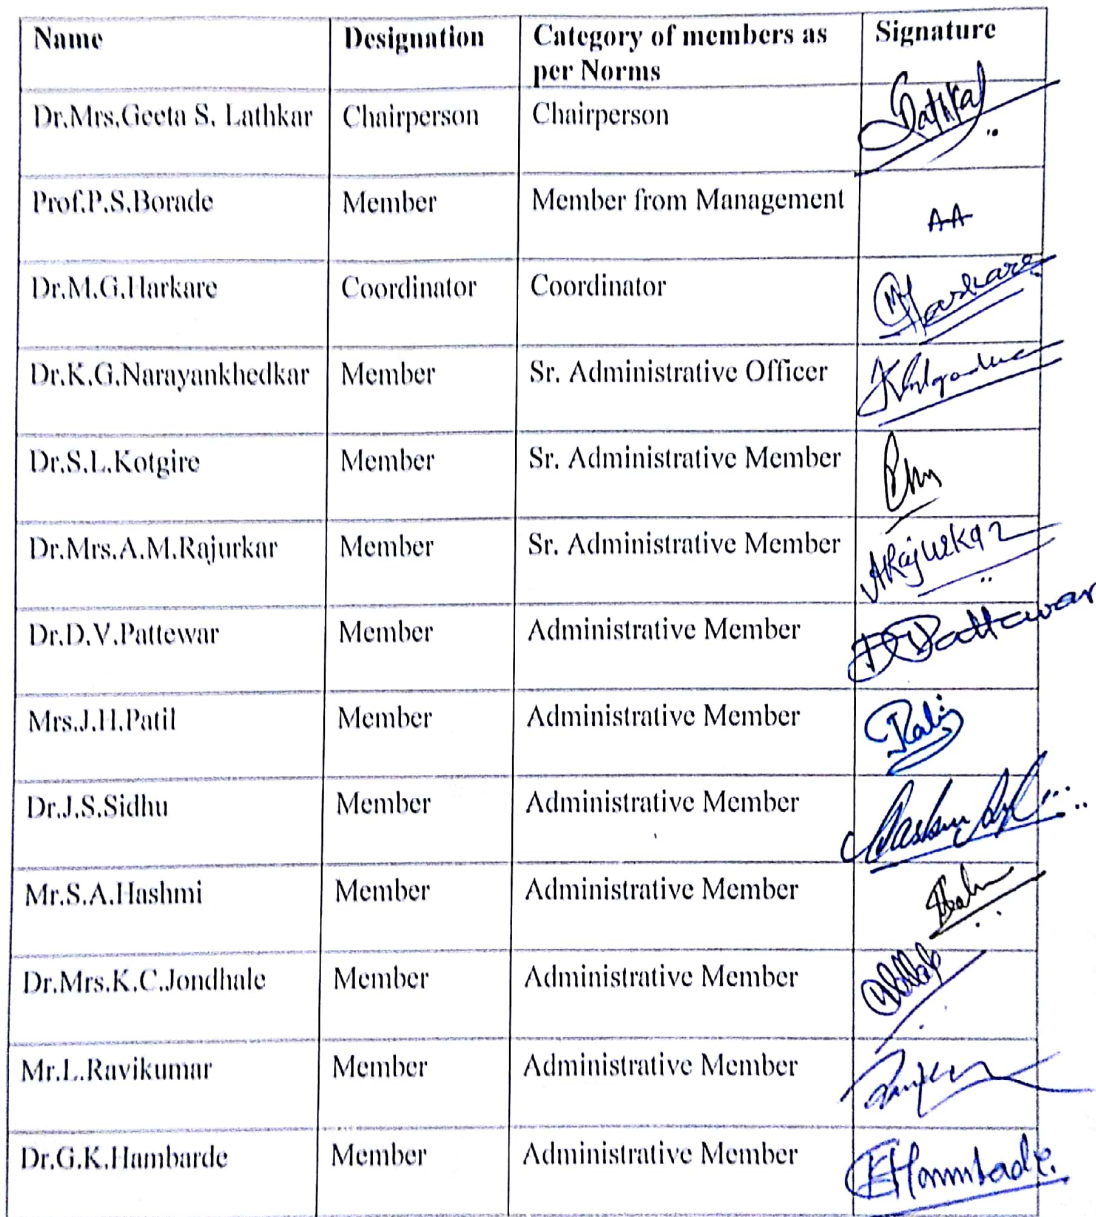 Name Designation Category of members as Signature
per Norms
Dr.Mrs.Geeta S. Lathkar Chairperson Chairperson Lathkar
Prof.P.S.Borade Member Member from Management AA
Dr.M.G.Harkare Coordinator Coordinator Harkare
Dr.K.G.Narayankhedkar Member Sr. Administrative Officer
Dr.S.L.Kotgire Member Sr. Administrative Member
Dr.Mrs.A.M.Rajurkar Member Sr. Administrative Member ARajurkar
Dr.D.V.Pattewar Member Administrative Member DVPattewar
Mrs.J.H.Patil Member Administrative Member
Dr.J.S.Sidhu Member Administrative Member
Mr.S.A.Hashmi Member Administrative Member
Dr.Mrs.K.C.Jondhale Member Administrative Member
Mr.L.Ravikumar Member Administrative Member
Dr.G.K.Hambarde Member Administrative Member GKHambarde